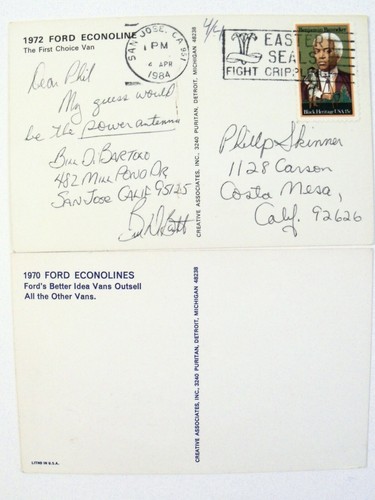 1972 FORD ECONOLINE
The First Choice Van
SAN JOSE, CA 951
PM
4 APR
1984
4/4
EASTER
SEALS
FIGHT CRIPPL
Benjamin Banneker
Black Heritage USA 15c
Dear Phil
My guess would
be the power antenna
Bill DiBartolo
482 Mill Pond Dr
San Jose Calif 95125
CREATIVE ASSOCIATES, INC., 3240 PURITAN, DETROIT, MICHIGAN 48238
Phillip Skinner
1128 Carson
Costa Mesa,
Calif. 92626
1970 FORD ECONOLINES
Ford's Better Idea Vans Outsell
All the Other Vans.
CREATIVE ASSOCIATES, INC., 3240 PURITAN, DETROIT, MICHIGAN 48238
LITHO IN U.S.A.